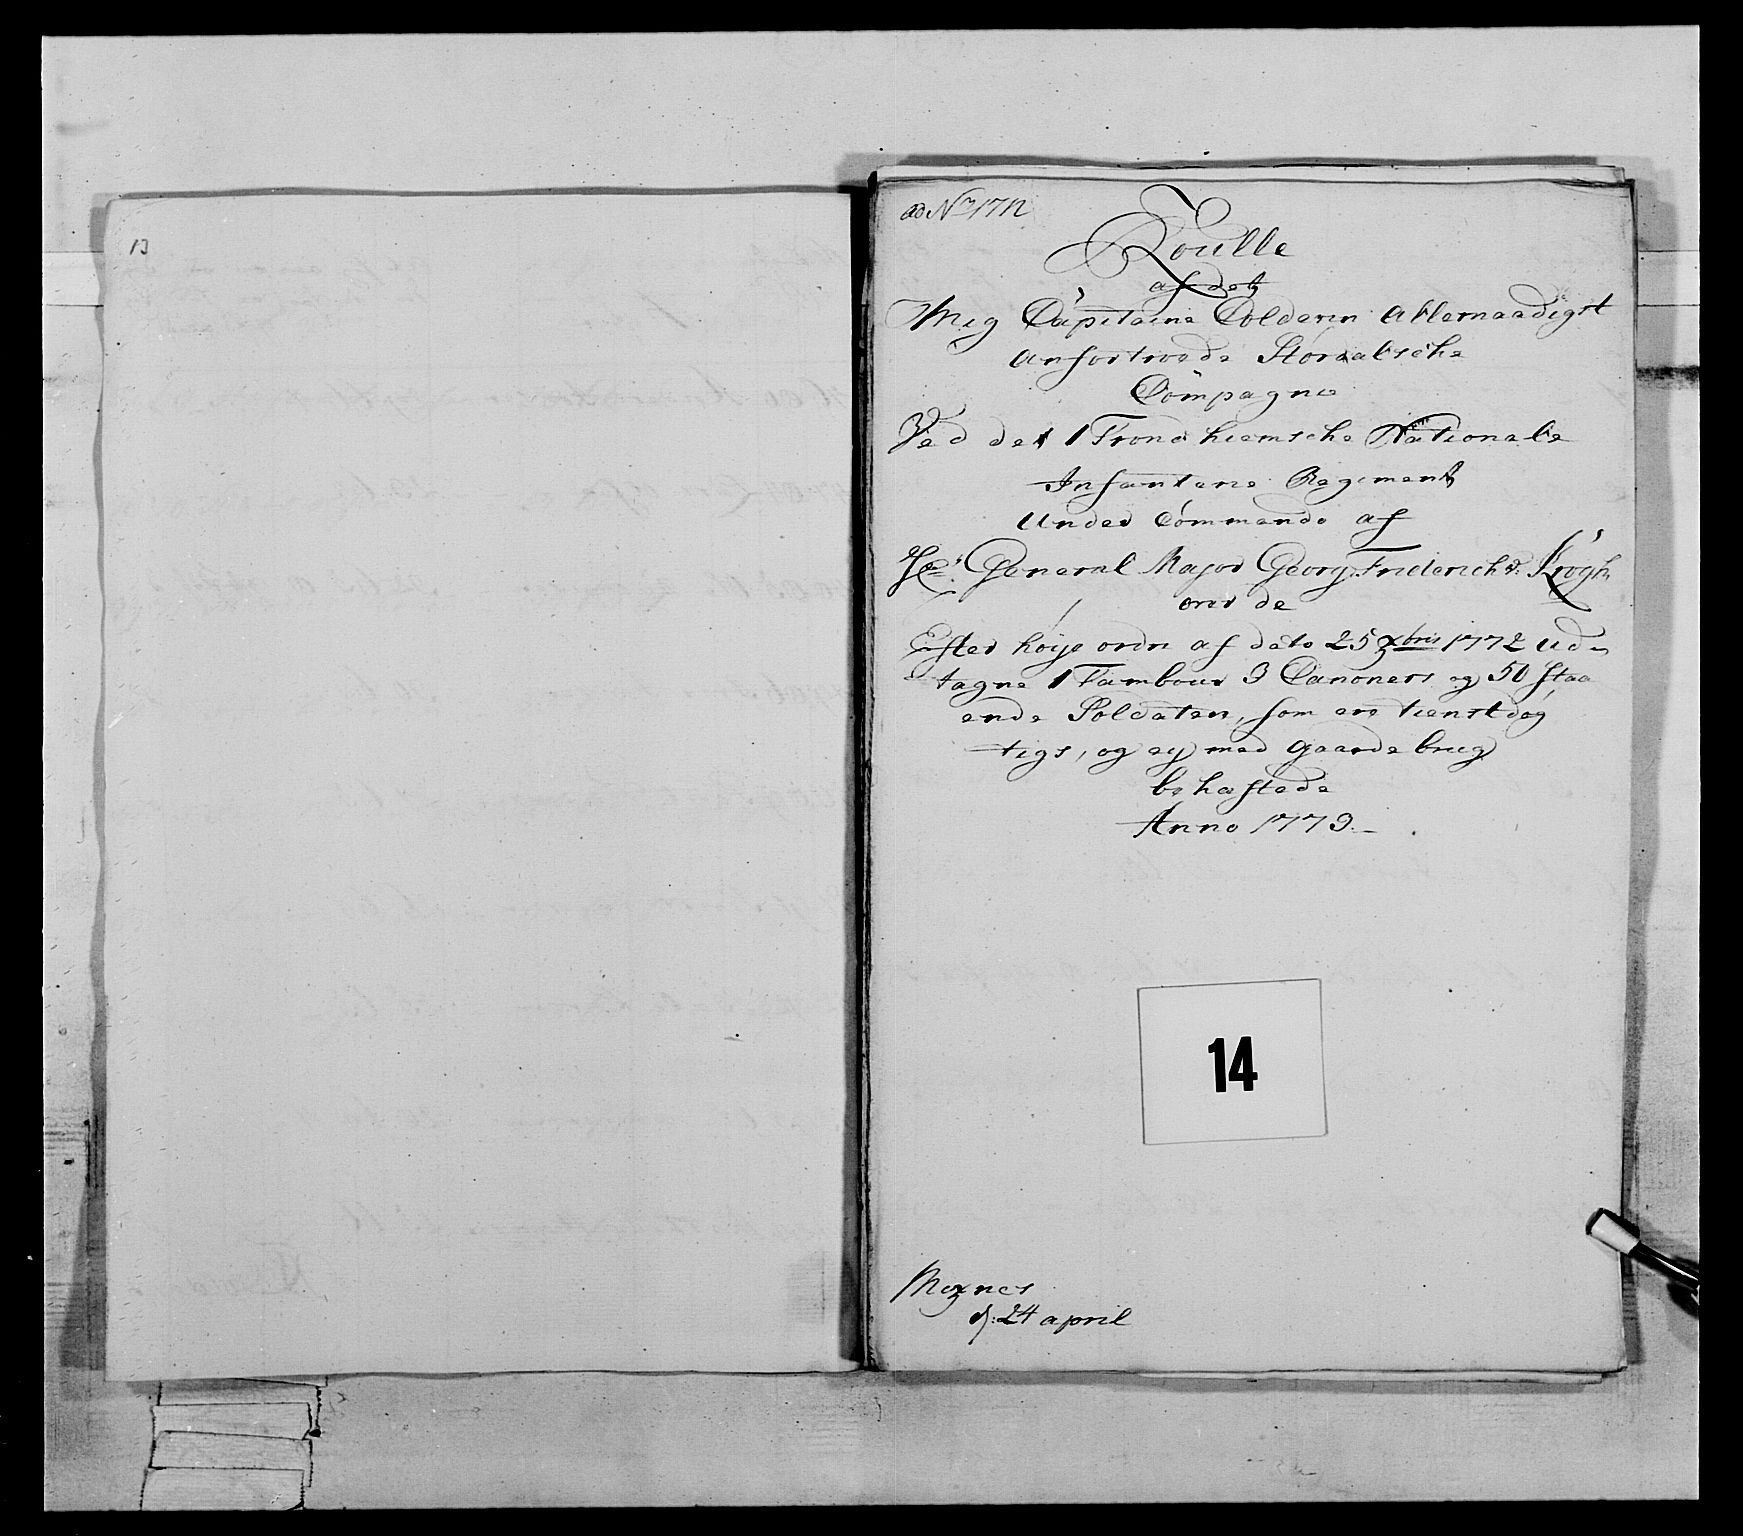 13
ad No 1712
Roulle
af det
Mig Capitaine Colderin Allernaadigst
Anfortroede Størdalsche
Compagnie
Ved det 1 Trondhiemsche Nationale
Infanterie Regiment
Under Commando af
Hr. General Major Georg Friderich v. Krogh
over de
Efter høye ordre af dato 25 xbris 1772 ud-
tagne 1 Tambour 3 Canoners og 50 staa
ende Soldater, som ere tienstdög
tige, og ey med gaarde brug
behæftede
Anno 1773.
14
d: 24 april